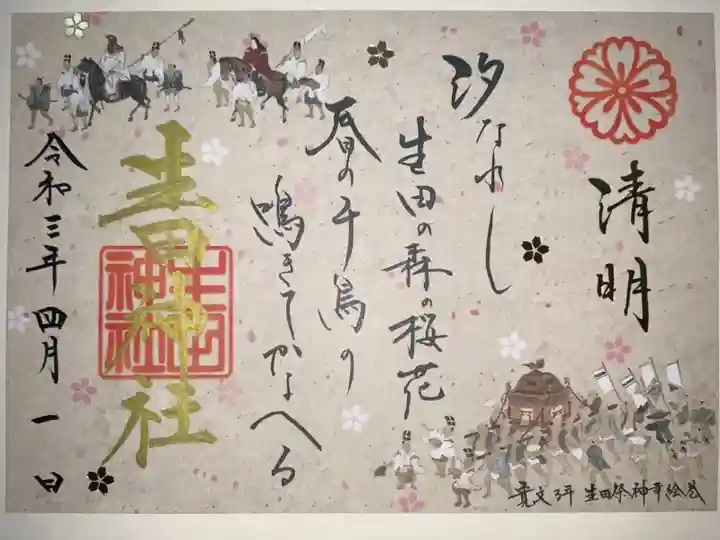 清明
汐なれし
生田の森の桜花
春の千鳥の
鳴きてかよへる
生田神社
生田神社
令和三年四月一日
寛文3年 生田祭神幸絵巻